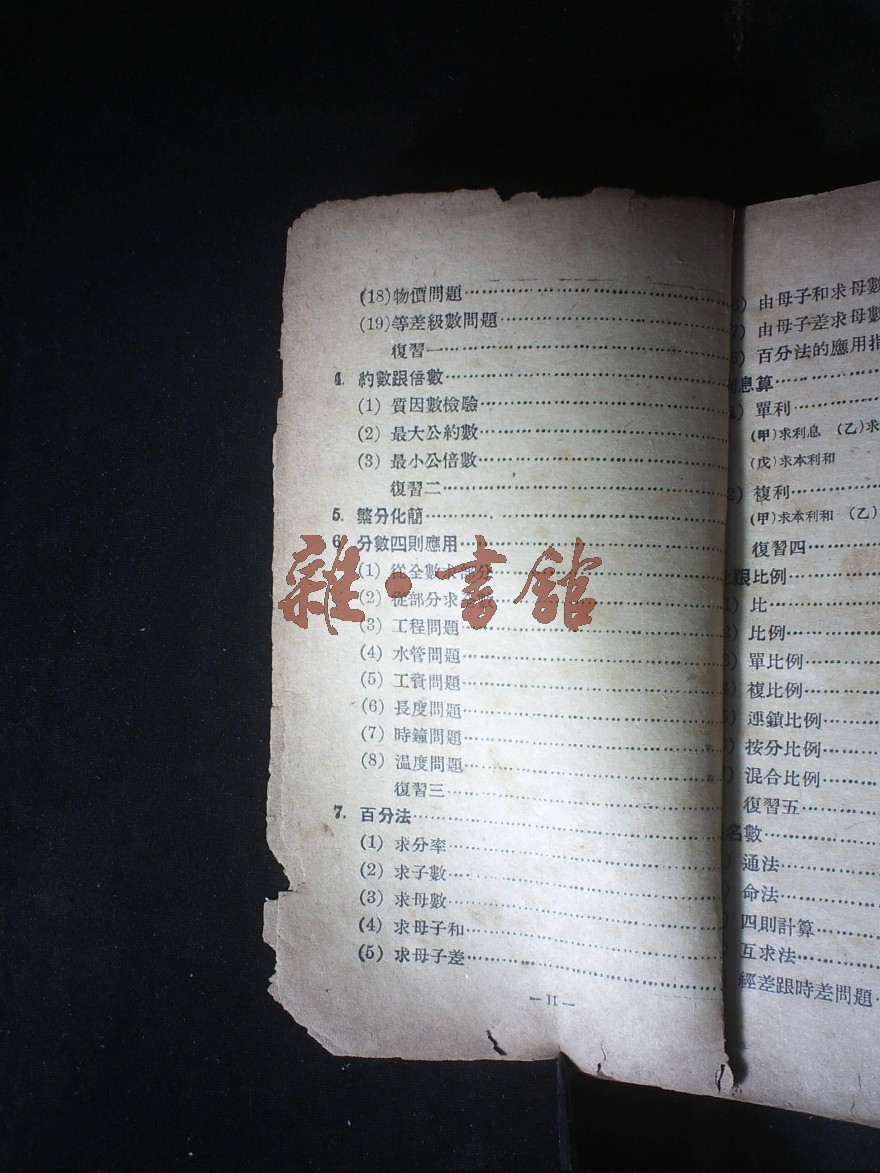 (18)物價問題
(19)等差級數問題
復習一
4. 約數跟倍數
(1) 質因數檢驗
(2) 最大公約數
(3) 最小公倍數
復習二
5. 繁分化簡
6. 分數四則應用
(1) 從全數求部分
(2) 從部分求
(3) 工程問題
(4) 水管問題
(5) 工資問題
(6) 長度問題
(7) 時鐘問題
(8) 温度問題
復習三
7. 百分法
(1) 求分率
(2) 求子數
(3) 求母數
(4) 求母子和
(5) 求母子差
—II—
雜·書館
) 由母子和求母數
7) 由母子差求母數
8) 百分法的應用
息算
1) 單利
(甲)求利息 (乙)求
(戊)求本利和
2) 複利
(甲)求本利和 (乙)
復習四
跟比例
1) 比
2) 比例
3) 單比例
) 複比例
5) 連鎖比例
) 按分比例
) 混合比例
復習五
名數
) 通法
) 命法
) 四則計算
互求法
經差跟時差問題